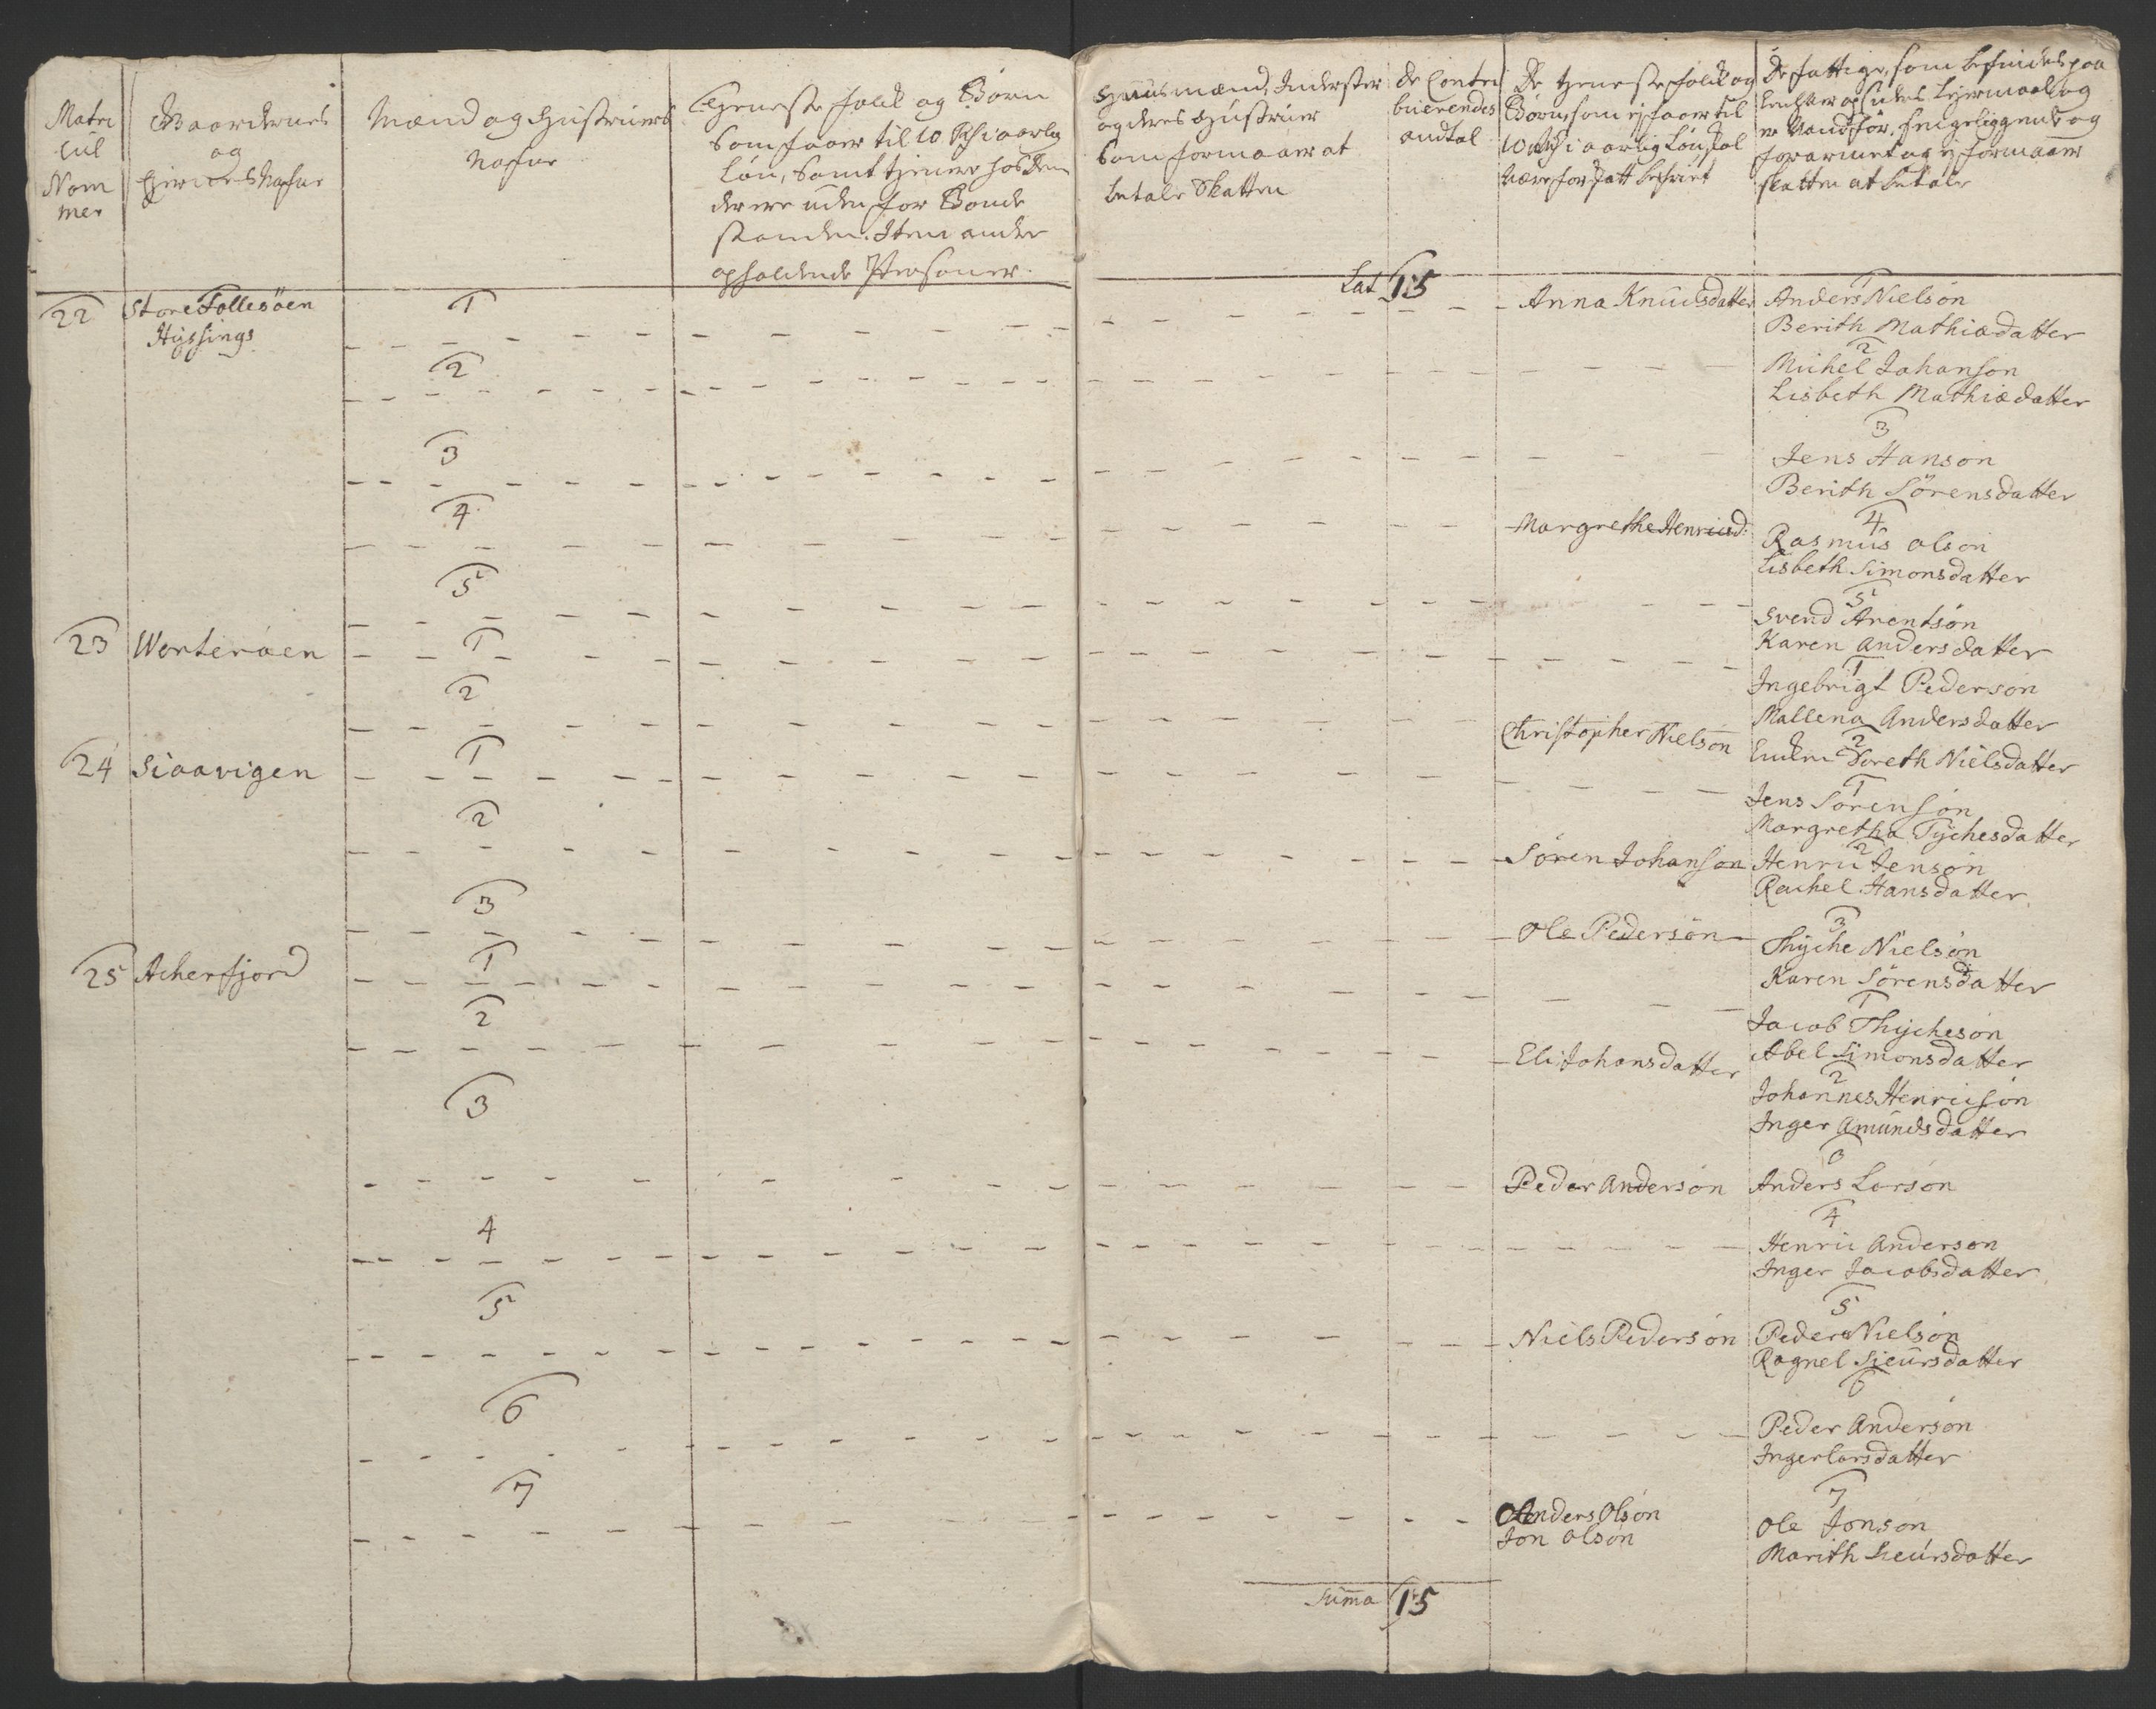 Matri
cul
Nom
mer
Gaardernes
og
Ejernes Nafne
Mænd og Hustruers
Nafne
Tjeneste folck og Børn
som faaer til 10 Rd i aarlig
Løn, samt tjenere hos dem
der ere uden for Bonde
standen. Item andre
opholdende Personer.
Huusmænd, Inderster
og deres Hustruer
som formaaer at
betale Skatten
De Contri
buerendes
andtal
De tjeneste folck og
Børn, som ej faaer til
10 Rd i aarlig Løn, skal
være for Fatt beskrivet
De fattige, som befindes paa
og
er Vandfør, sengeliggende og
forarmet og ej formaaer
skatten at betale
Lat 15
22 Store Follesöen
Hyssings
1
Anna Knudsdatter
1
Anders Nielsön
Berith Mathiædatter
2
2
Michel Johanson
Lisbeth Mathiædatter
3
3
Jens Hanson
Berith Sörensdatter
4
Margrethe Henricsd:
4
Rasmus Olsön
Lisbeth Simonsdatter
5
5
Svend Arentsön
Karen Andersdatter
23 Werteröen
1
1
Ingebrigt Pedersön
Mallena Andersdatter
2
Christopher Nielsön
2
Encken Doreth Nielsdatter
24 Siaavigen
1
1
Jens Sörensön
Margretha Tÿchesdatter
2
Sören Johansön
2
Henric Jensön
Rachel Hansdatter
3
Ole Pedersön
3
Thÿche Nielsön
Karen Sörensdatter
25 Acherfjord
1
1
Jacob Thÿchesön
Abel Simonsdatter
2
Eli Johansdatter
2
Johannes Henricsön
Inger Amundsdatter
3
3
Peder Andersön
Anders Larsön
4
4
Henric Andersön
Inger Jacobsdatter
5
5
Niels Pedersön
Peder Nielsön
Ragnel Sieursdatter
6
6
Peder Andersön
Inger Larsdatter
7
7
Anders Olsön
Jon Olsön
Ole Jonsön
Marith Sieursdatter
Summa 15